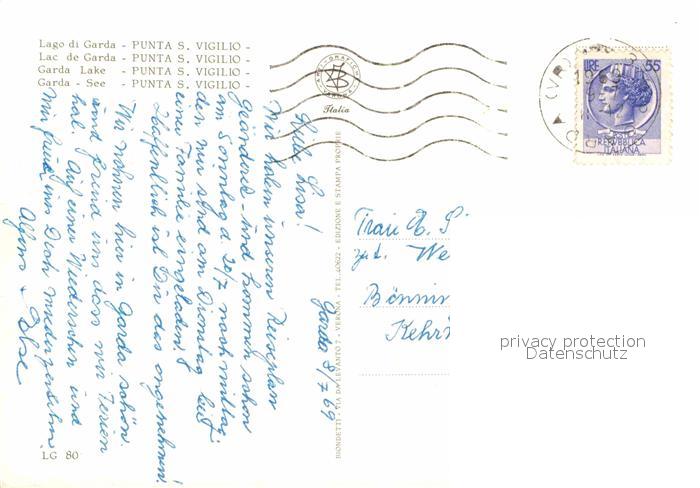 Lago di Garda - PUNTA S. VIGILIO -
Lac de Garda - PUNTA S. VIGILIO -
Garda Lake - PUNTA S. VIGILIO -
Garda - See - PUNTA S. VIGILIO -
Italia
LIRE 55
REPVBBLICA
ITALIANA
Garda 8/7 69
Liebe Lisa!
Wir haben unseren Reiseplan
geändert - und kommen schon
am Sonntag d. 20/7 nachmittag,
den wir sind am Dienstag bei
einer Familie eingeladen!
Hoffentlich ist Dir das angenehm!
Wir wohnen hier in Garda schön
und freuen uns dass wir Ferien
hab. Auf einer Wiedersehen und
wir freuen uns Dich wieder
+ Else
BIONDETTI - VIA DA LEVANTO 7 - VERONA - TEL. 40622 - EDIZIONE E STAMPA PROPRIE
Frau E. S
We
Bönnin
Kehr
privacy protection
Datenschutz
LG 80